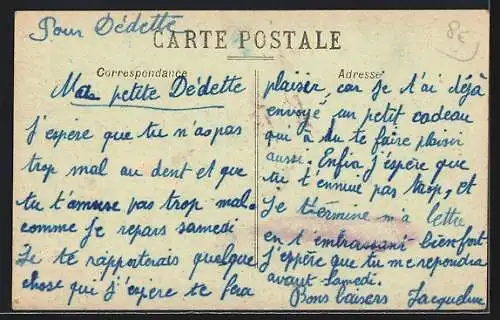 Pour Dédette
8€
CARTE POSTALE
Correspondance
Adresse
Ma petite Dédette
J'espère que tu n'as pas
trop mal au dent et que
tu t'amuse pas trop mal.
comme Je repars samedi
Je te rapporterais quelque
chose qui j'espère te fera
plaisir, car je t'ai déjà
envoyé un petit cadeau
qui a du te faire plaisir
aussi. Enfin j'espère que
tu t'ennuie pas trop, et
Je termine m'a lettre
en t'embrassant bien fort
J'espère que tu me repondra
avant Samedi.
Bons baisers Jacqueline